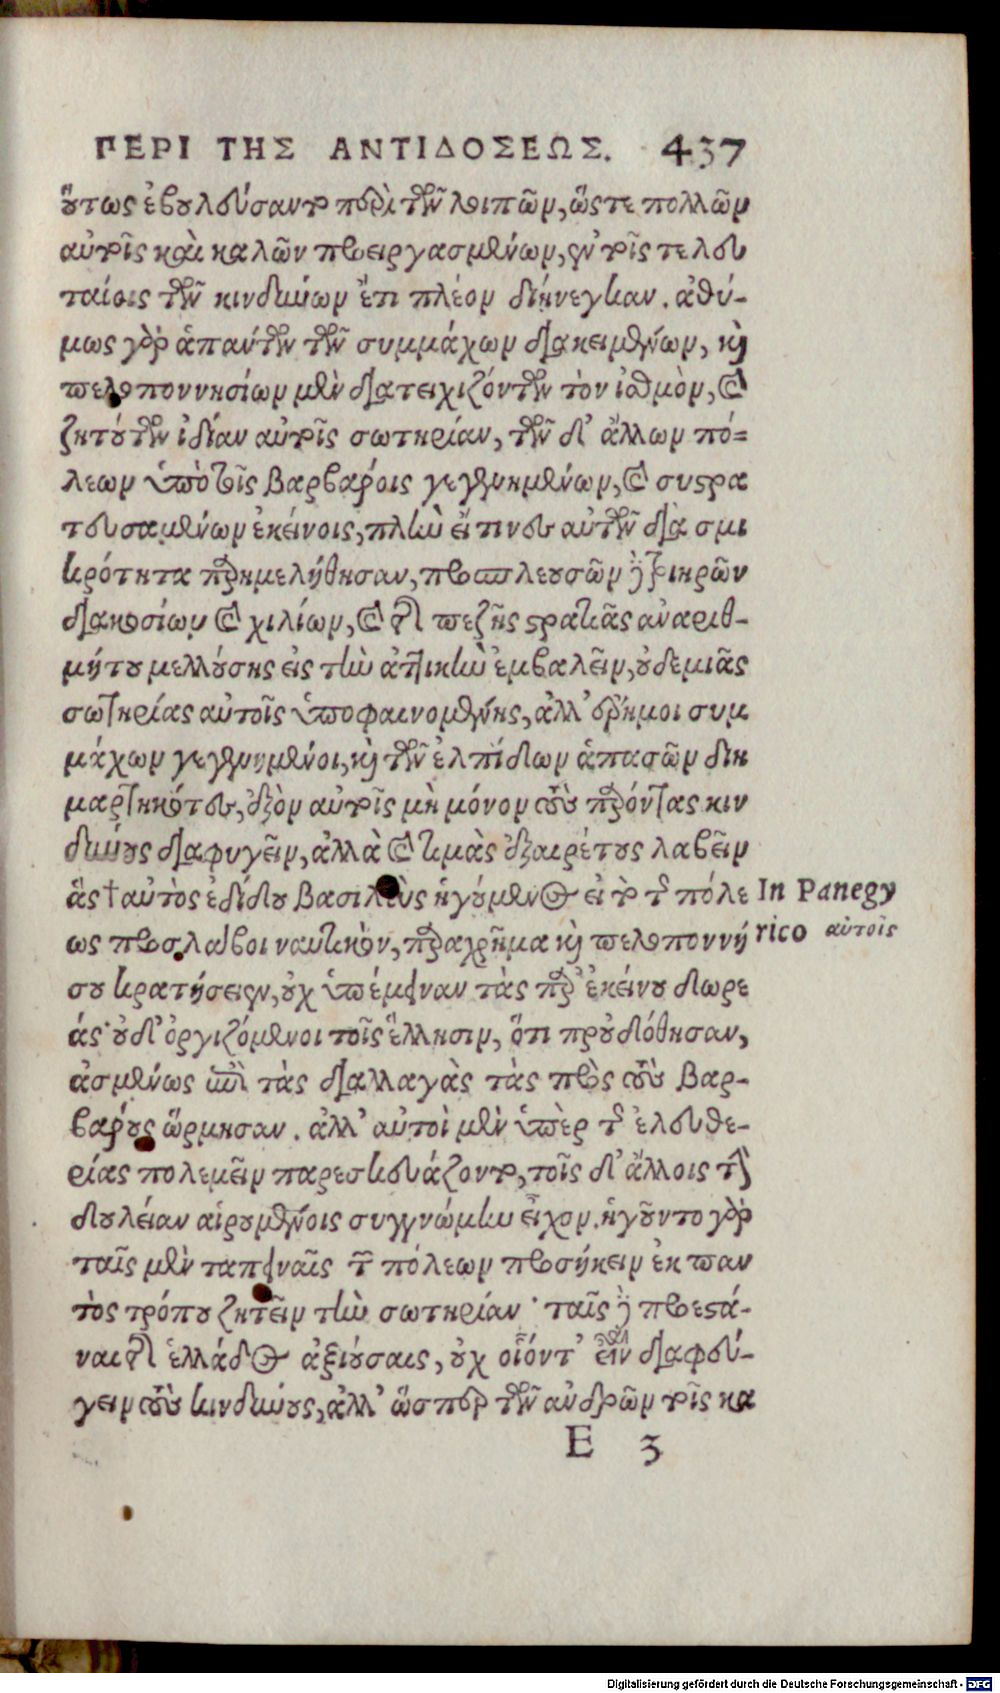 ΠΕΡΙ ΤΗΣ ΑΝΤΙΔΟΣΕΩΣ. 437
οὕτως ἐβουλεύσαντο περὶ τῶν λοιπῶν, ὥςτε πολλῶν
αὐτοῖς καὶ καλῶν προειργασμένων, ἐν τοῖς τελευ
ταίοις τῶν κινδύνων ἔτι πλέον διήνεγκαν. ἀθύ-
μως γὸρ ἁπάντων τῶν συμμάχων διακειμένων, καὶ
πελοποννησίων μὲν διατειχιζόντων τὸν ἰσθμὸν, καὶ
ζητούντων ἰδίαν αὐτοῖς σωτηρίαν, τῶν δ' ἄλλων πό=
λεων ὑπὸ τοῖς βαρβάροις γεγενημένων, καὶ συστρα
τευσαμένων ἐκείνοις, πλὴν εἴ τινες αὐτῶν διὰ σμι
κρότητα παρημελήθησαν, προσπλευσῶν δὲ τριηρῶν
διακοσίων καὶ χιλίων, καὶ τῆς πεζῆς στρατιᾶς ἀναριθ-
μήτου μελλούσης εἰς τὴν ἀττικὴν ἐμβαλεῖν, οὐδεμιᾶς
σωτηρίας αὐτοῖς ὑποφαινομένης, ἀλλ' ἔρημοι συμ
μάχων γεγενημένοι, καὶ τῶν ἐλπίδων ἁπασῶν διη
μαρτηκότες, ἐξὸν αὐτοῖς μὴ μόνον τοὺς παρόντας κιν
δύνους διαφυγεῖν, ἀλλὰ καὶ τιμὰς ἐξαιρέτους λαβεῖν
ἃς † αὐτὸς ἐδίδου βασιλεὺς ἡγούμενος εἰ τὸ τῆς πόλε
In Panegy
ως προσλάβοι ναυτικὸν, παραχρῆμα καὶ πελοποννή
rico αὐτοῖς
σου κρατήσειν, οὐχ ὑπέμειναν τὰς παρ' ἐκείνου δωρε
άς· οὐδ' ὀργιζόμενοι τοῖς ἕλλησιν, ὅτι προὐδόθησαν,
ἀσμένως ἐπὶ τὰς διαλλαγὰς τὰς πρὸς τοὺς βαρ-
βάρους ὥρμησαν. ἀλλ' αὐτοὶ μὲν ὑπὲρ τῆς ἐλευθε-
ρίας πολεμεῖν παρεσκευάζοντο, τοῖς δ' ἄλλοις τὴν
δουλείαν αἱρουμένοις συγγνώμην εἶχον. ἡγοῦντο γὸρ
ταῖς μὲν ταπειναῖς τῶν πόλεων προσήκειν ἐκ παν
τὸς τρόπου ζητεῖν τὴν σωτηρίαν· ταῖς δὲ προεστά-
ναι τῆς ἑλλάδος ἀξιούσαις, οὐχ οἷόντ' εἶναι διαφεύ-
γειν τοὺς κινδύνους, ἀλλ' ὥσπερ τῶν ἀνδρῶν τοῖς κα
E 3
Digitalisierung gefördert durch die Deutsche Forschungsgemeinschaft - DFG